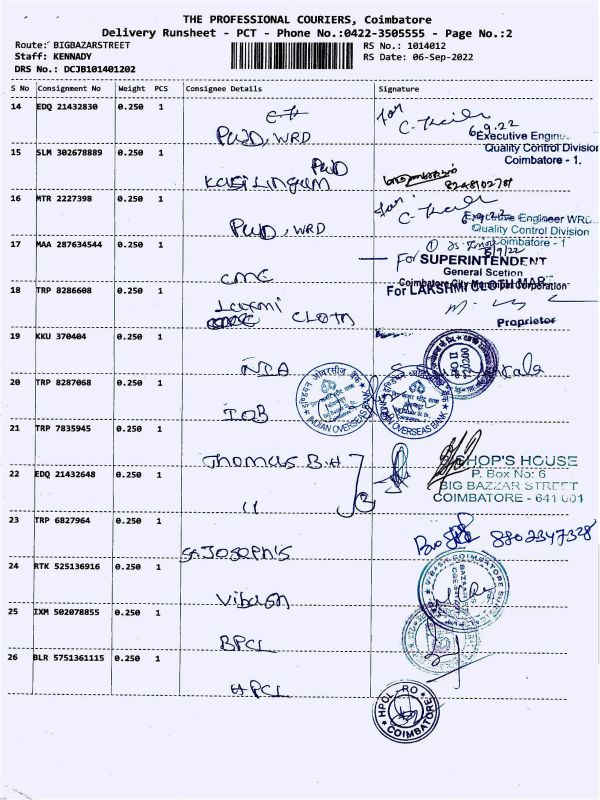 THE PROFESSIONAL COURIERS, Coimbatore
Delivery Runsheet - PCT - Phone No.:0422-3505555 - Page No.:2
Route: BIGBAZARSTREET
RS No.: 1014012
Staff: KENNADY
RS Date: 06-Sep-2022
DRS No.: DCJB101401202
S No Consignment No Weight PCS Consignee Details Signature
14 EDQ 21432830 0.250 1
PWD, WRD
for
6.9.22
Executive Engine
Quality Control Division
Coimbatore - 1.
15 SLM 302678889 0.250 1
PWD
KASILINGAM
16 MTR 2227398 0.250 1
PWD, WRD
for
Executive Engineer WRD
Quality Control Division
Coimbatore - 1
17 MAA 287634544 0.250 1
CMC
For SUPERINTENDENT
General Scetion
Coimbatore City Municipal Corporation
18 TRP 8286608 0.250 1
Laxmi
CLOTH
For LAKSHMI CLOTH MART
Proprietor
19 KKU 370404 0.250 1
NIA
20 TRP 8287068 0.250 1
IOB
INDIAN OVERSEAS BANK
INDIAN OVERSEAS BANK
21 TRP 7835945 0.250 1
Thomas B.H
22 EDQ 21432648 0.250 1
"
SHOP'S HOUSE
P. Box No: 6
BIG BAZZAR STREET
COIMBATORE - 641 001
23 TRP 6827964 0.250 1
St. JOSEPH'S
8802347328
24 RTK 525136916 0.250 1
COIMBATORE
25 IXM 502078855 0.250 1
BPCL
26 BLR 5751361115 0.250 1
HPCL
HPCL-RO
COIMBATORE